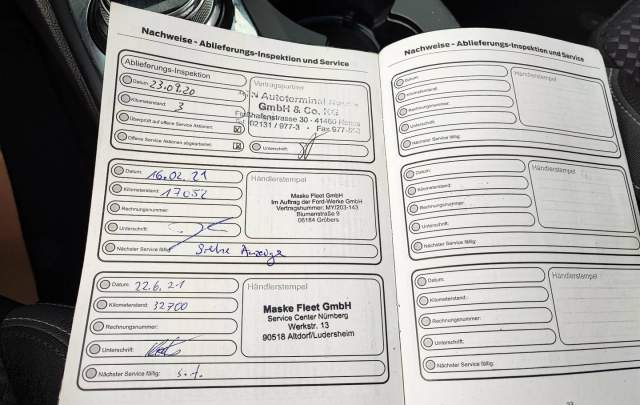 Nachweise - Ablieferungs-Inspektion und Service
Ablieferungs-Inspektion
Datum: 23.09.20
Kilometerstand: 3
Überprüft auf offene Service Aktionen:
Offene Service Aktionen abgearbeitet:
Vertragspartner
Autoterminal
GmbH & Co. KG
30 - 41460
02131 / 977-3 - Fax 977-
Unterschrift:
Datum: 16.02.21
Kilometerstand: 17052
Rechnungsnummer:
Unterschrift:
Nächster Service fällig: Siehe Anzeige
Händlerstempel
Maske Fleet GmbH
Im Auftrag der Ford-Werke GmbH
Vertragsnummer: MY/203-143
Blumenstraße 9
06184 Gröbers
Datum: 22.6.21
Kilometerstand: 32700
Rechnungsnummer:
Unterschrift:
Nächster Service fällig: s.A.
Händlerstempel
Maske Fleet GmbH
Service Center Nürnberg
Werkstr. 13
90518 Altdorf/Ludersheim
Nachweise - Ablieferungs-Inspektion und Service
Datum:
Kilometerstand:
Rechnungsnummer:
Unterschrift:
Nächster Service fällig:
Händlerstempel
Datum:
Kilometerstand:
Rechnungsnummer:
Unterschrift:
Nächster Service fällig:
Händlerstempel
Datum:
Kilometerstand:
Rechnungsnummer:
Unterschrift:
Nächster Service fällig:
Händlerstempel